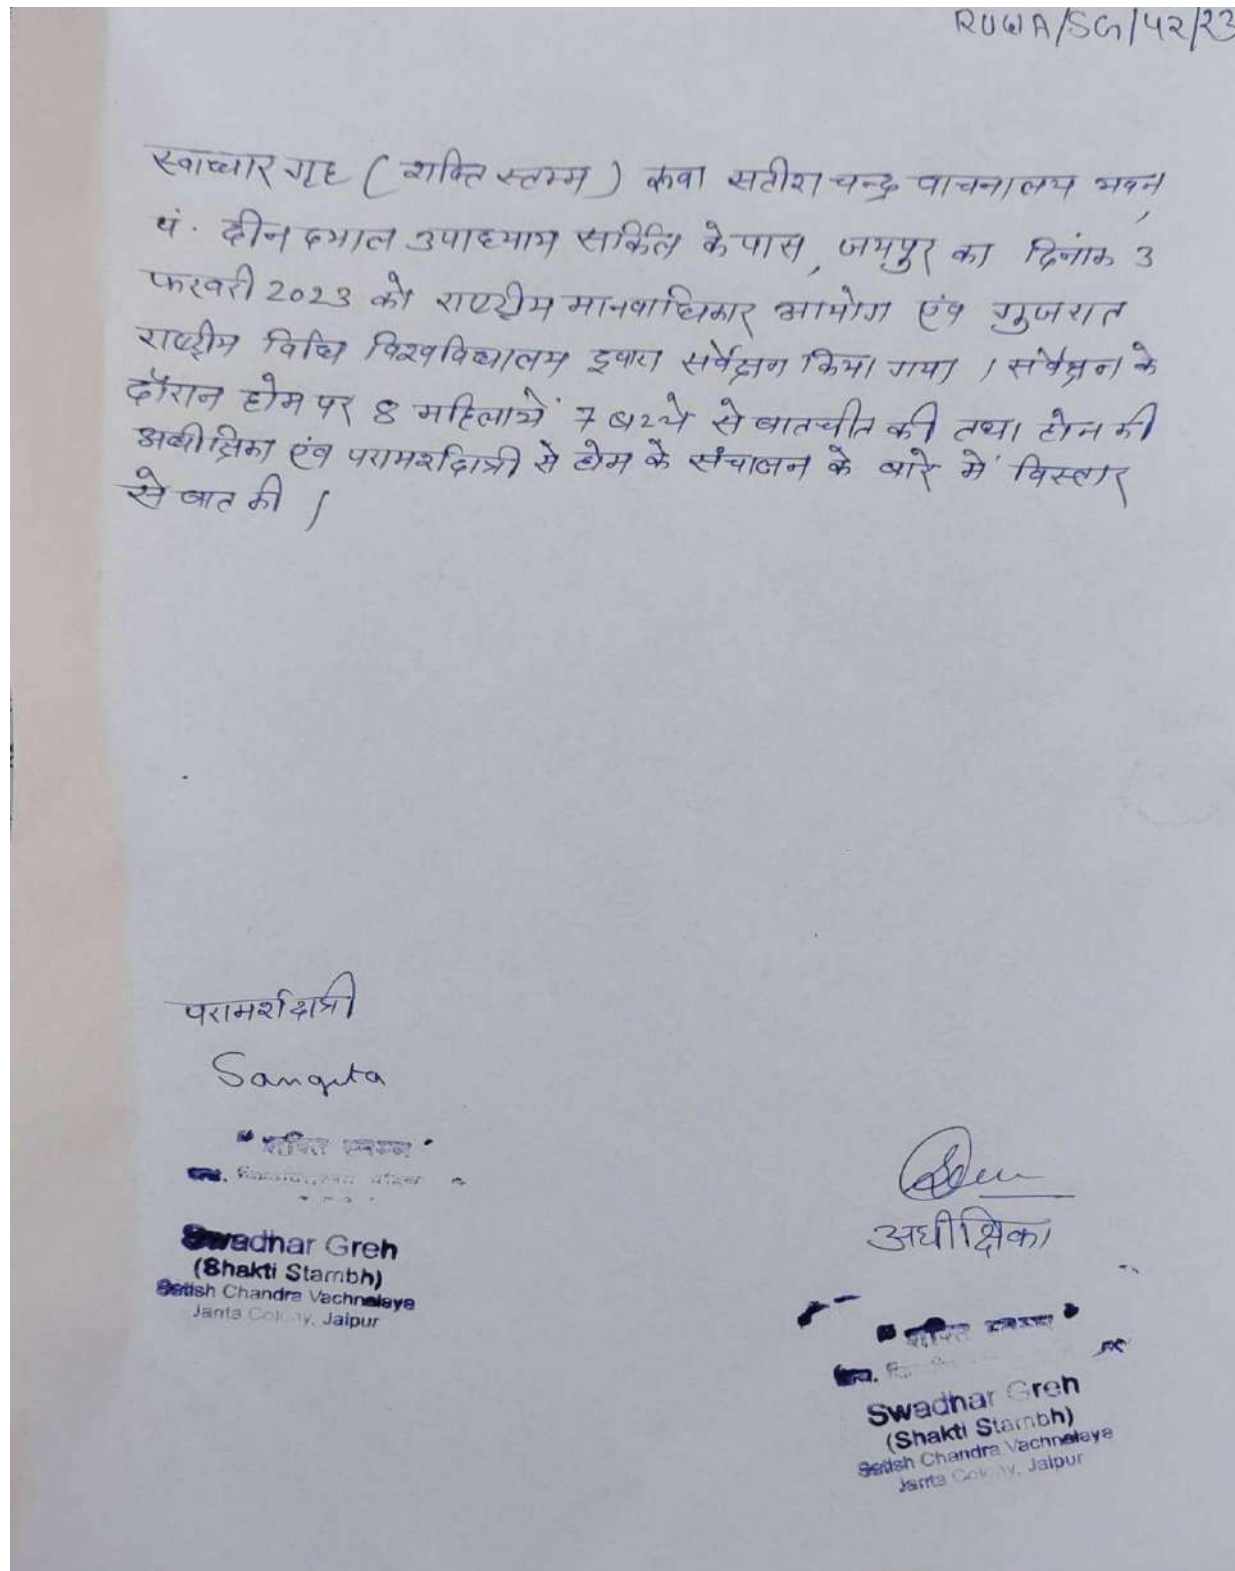 RUWA/SG/42/23
स्वाधार गृह ( शक्ति स्तम्भ ) रूवा सतीश चन्द्र वाचनालय भवन,
पं. दीनदयाल उपाध्याय सर्किल के पास, जयपुर का दिनांक 3
फरवरी 2023 को राष्ट्रीय मानवाधिकार आयोग एंव गुजरात
राष्ट्रीय विधि विश्वविद्यालय द्वारा सर्वेक्षण किया गया । संर्वेक्षन के
दौरान होम पर 8 महिलायें 7 बच्चे से बातचीत की तथा होम की
अधीक्षिका एंव परामर्शदात्री से होम के संचालन के बारे में विस्तार
से बात की ।
परामर्शदात्री
Sangita
Swadhar Greh
(Shakti Stambh)
Satish Chandra Vachnalaya
Janta Colony, Jaipur
अधीक्षिका
Swadhar Greh
(Shakti Stambh)
Satish Chandra Vachnalaya
Janta Colony, Jaipur